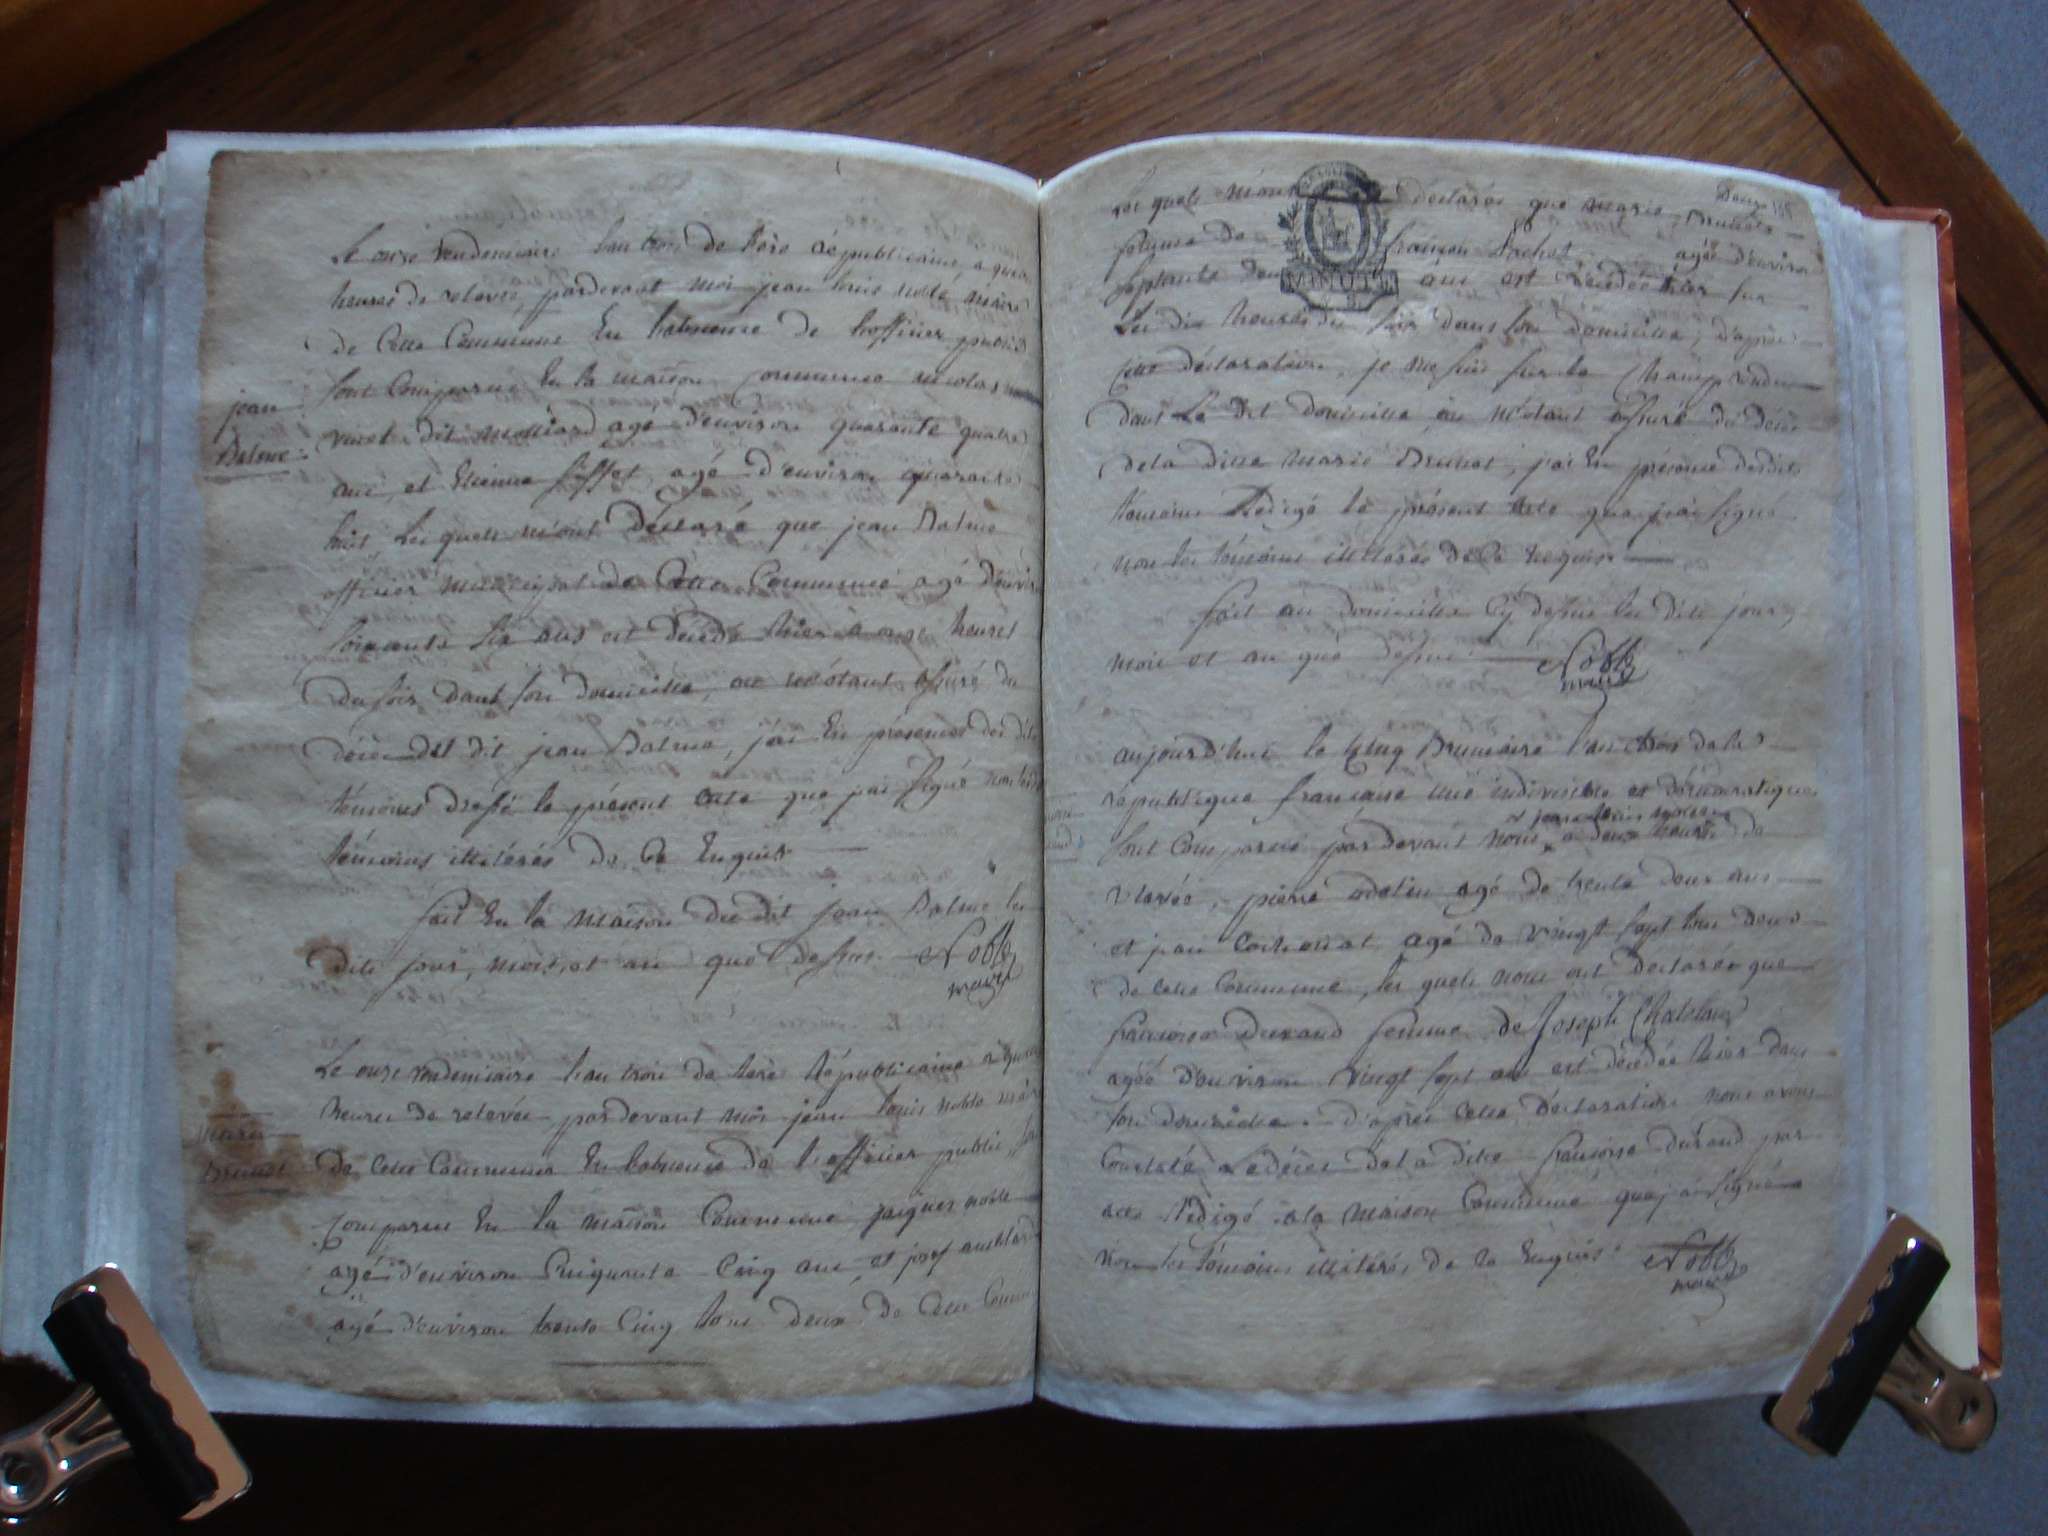 Le onze vendemiaire l'an trois de l'ère républicaine, a quatre
heures de relevée, pardevant moi jean louis noble maire
de Cette Commune En l'absence de l'officier public
sont Comparus En la maison Commune nicolas
jean
vinet dit molliard agé d'environ quarante quatre
Dalme
ans, et Etienne siffet agé d'environ quarante
huit, Les quels m'ont Déclaré que jean Dalme
officier municipal de Cette Commune agé d'environ
soixante six ans est décédé hier à onze heures
du soir dans son domicille, ou m'étant assuré du
décès du dit jean Dalme, j'ai En présence des dits
témoins dressé le présent acte que j'ai signé non les
témoins illitérés de Ce Enquis
fait En la maison du dit jean Dalme les
dits jour, mois et an que dessus Noble
maire
Le onze vendemiaire l'an trois de l'ère Républicaine a quatre
heures de relevée pardevant moi jean louis noble maire
marie
Drunot
de Cette Commune En l'absence de l'officier public, sont
Comparus En la maison Commune jaques noble
agé d'environ Cinquante Cinq ans, et
agé d'environ trente Cinq tous deux de Cette Commune
Les quels m'ont déclarés que marie
femme de françois Lachat agée d'environ
septante deux ans est décédée hier sur
Les dix heures du soir dans son domicille; d'après
Cette déclaration, je me suis sur le Champ rendu
dans Le dit domicille ou m'étant assuré du décès
de la ditte marie, j'ai En présence desdits
témoins Redigé le présent acte que j'ai signé
non les témoins illitérés de Ce Requis
fait au domicille Cy dessus les dits jour,
mois et an que dessus Noble
maire
aujourd'hui le Cinq Brumaire l'an trois de la
république française une indivisible et démocratique
jean louis noble
sont Comparus pardevant nous a deux heures de
relevée, pierre agé de trente deux ans
et jean agé de vingt sept tous deux
de cette Commune, les quels nous ont déclarés que
françoise durand femme de Joseph Chatelain
agée d'environ vingt sept ans est décédée hier dans
son domicille. D'après Cette déclaration nous avons
Constaté Le décès de la ditte françoise durand par
acte Rédigé a la maison Commune que j'ai signé
non les témoins illitérés de Ce Enquis Noble
maire